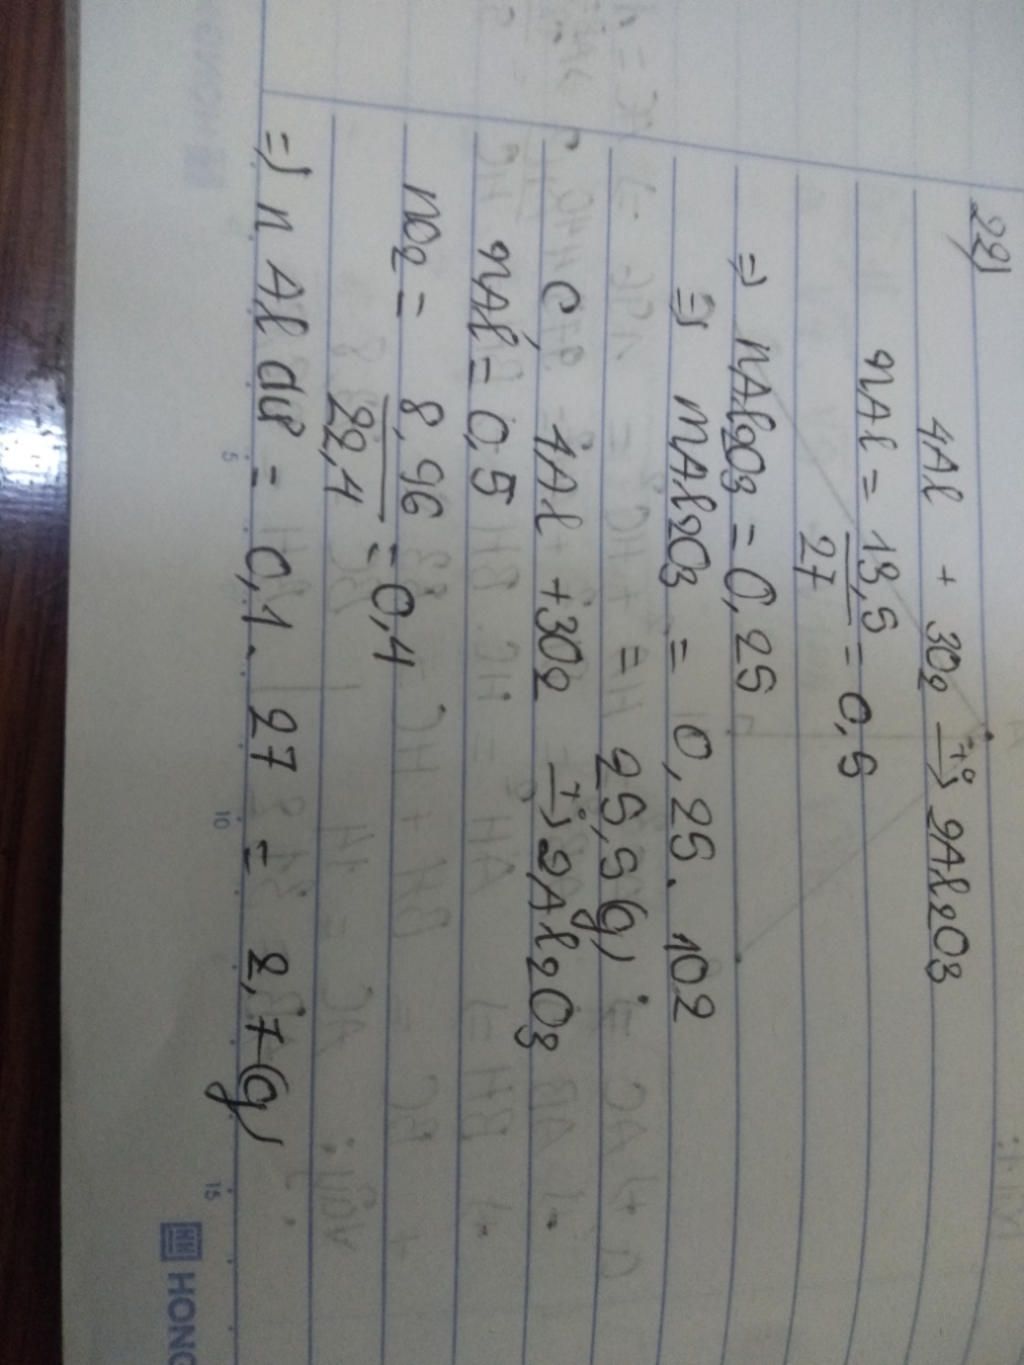 22)
4Al + 3O2 -t°-> 2Al2O3
nAl = 13,5/27 = 0,5
=> nAl2O3 = 0,25
=> mAl2O3 = 0,25. 102
= 25,5 (g)
c, 4Al + 3O2 -t°-> 2Al2O3
nAl = 0,5
nO2 = 8,96/22,4 = 0,4
=> n Al dư = 0,1. 27 = 2,7 (g)
5 10 15
HONG